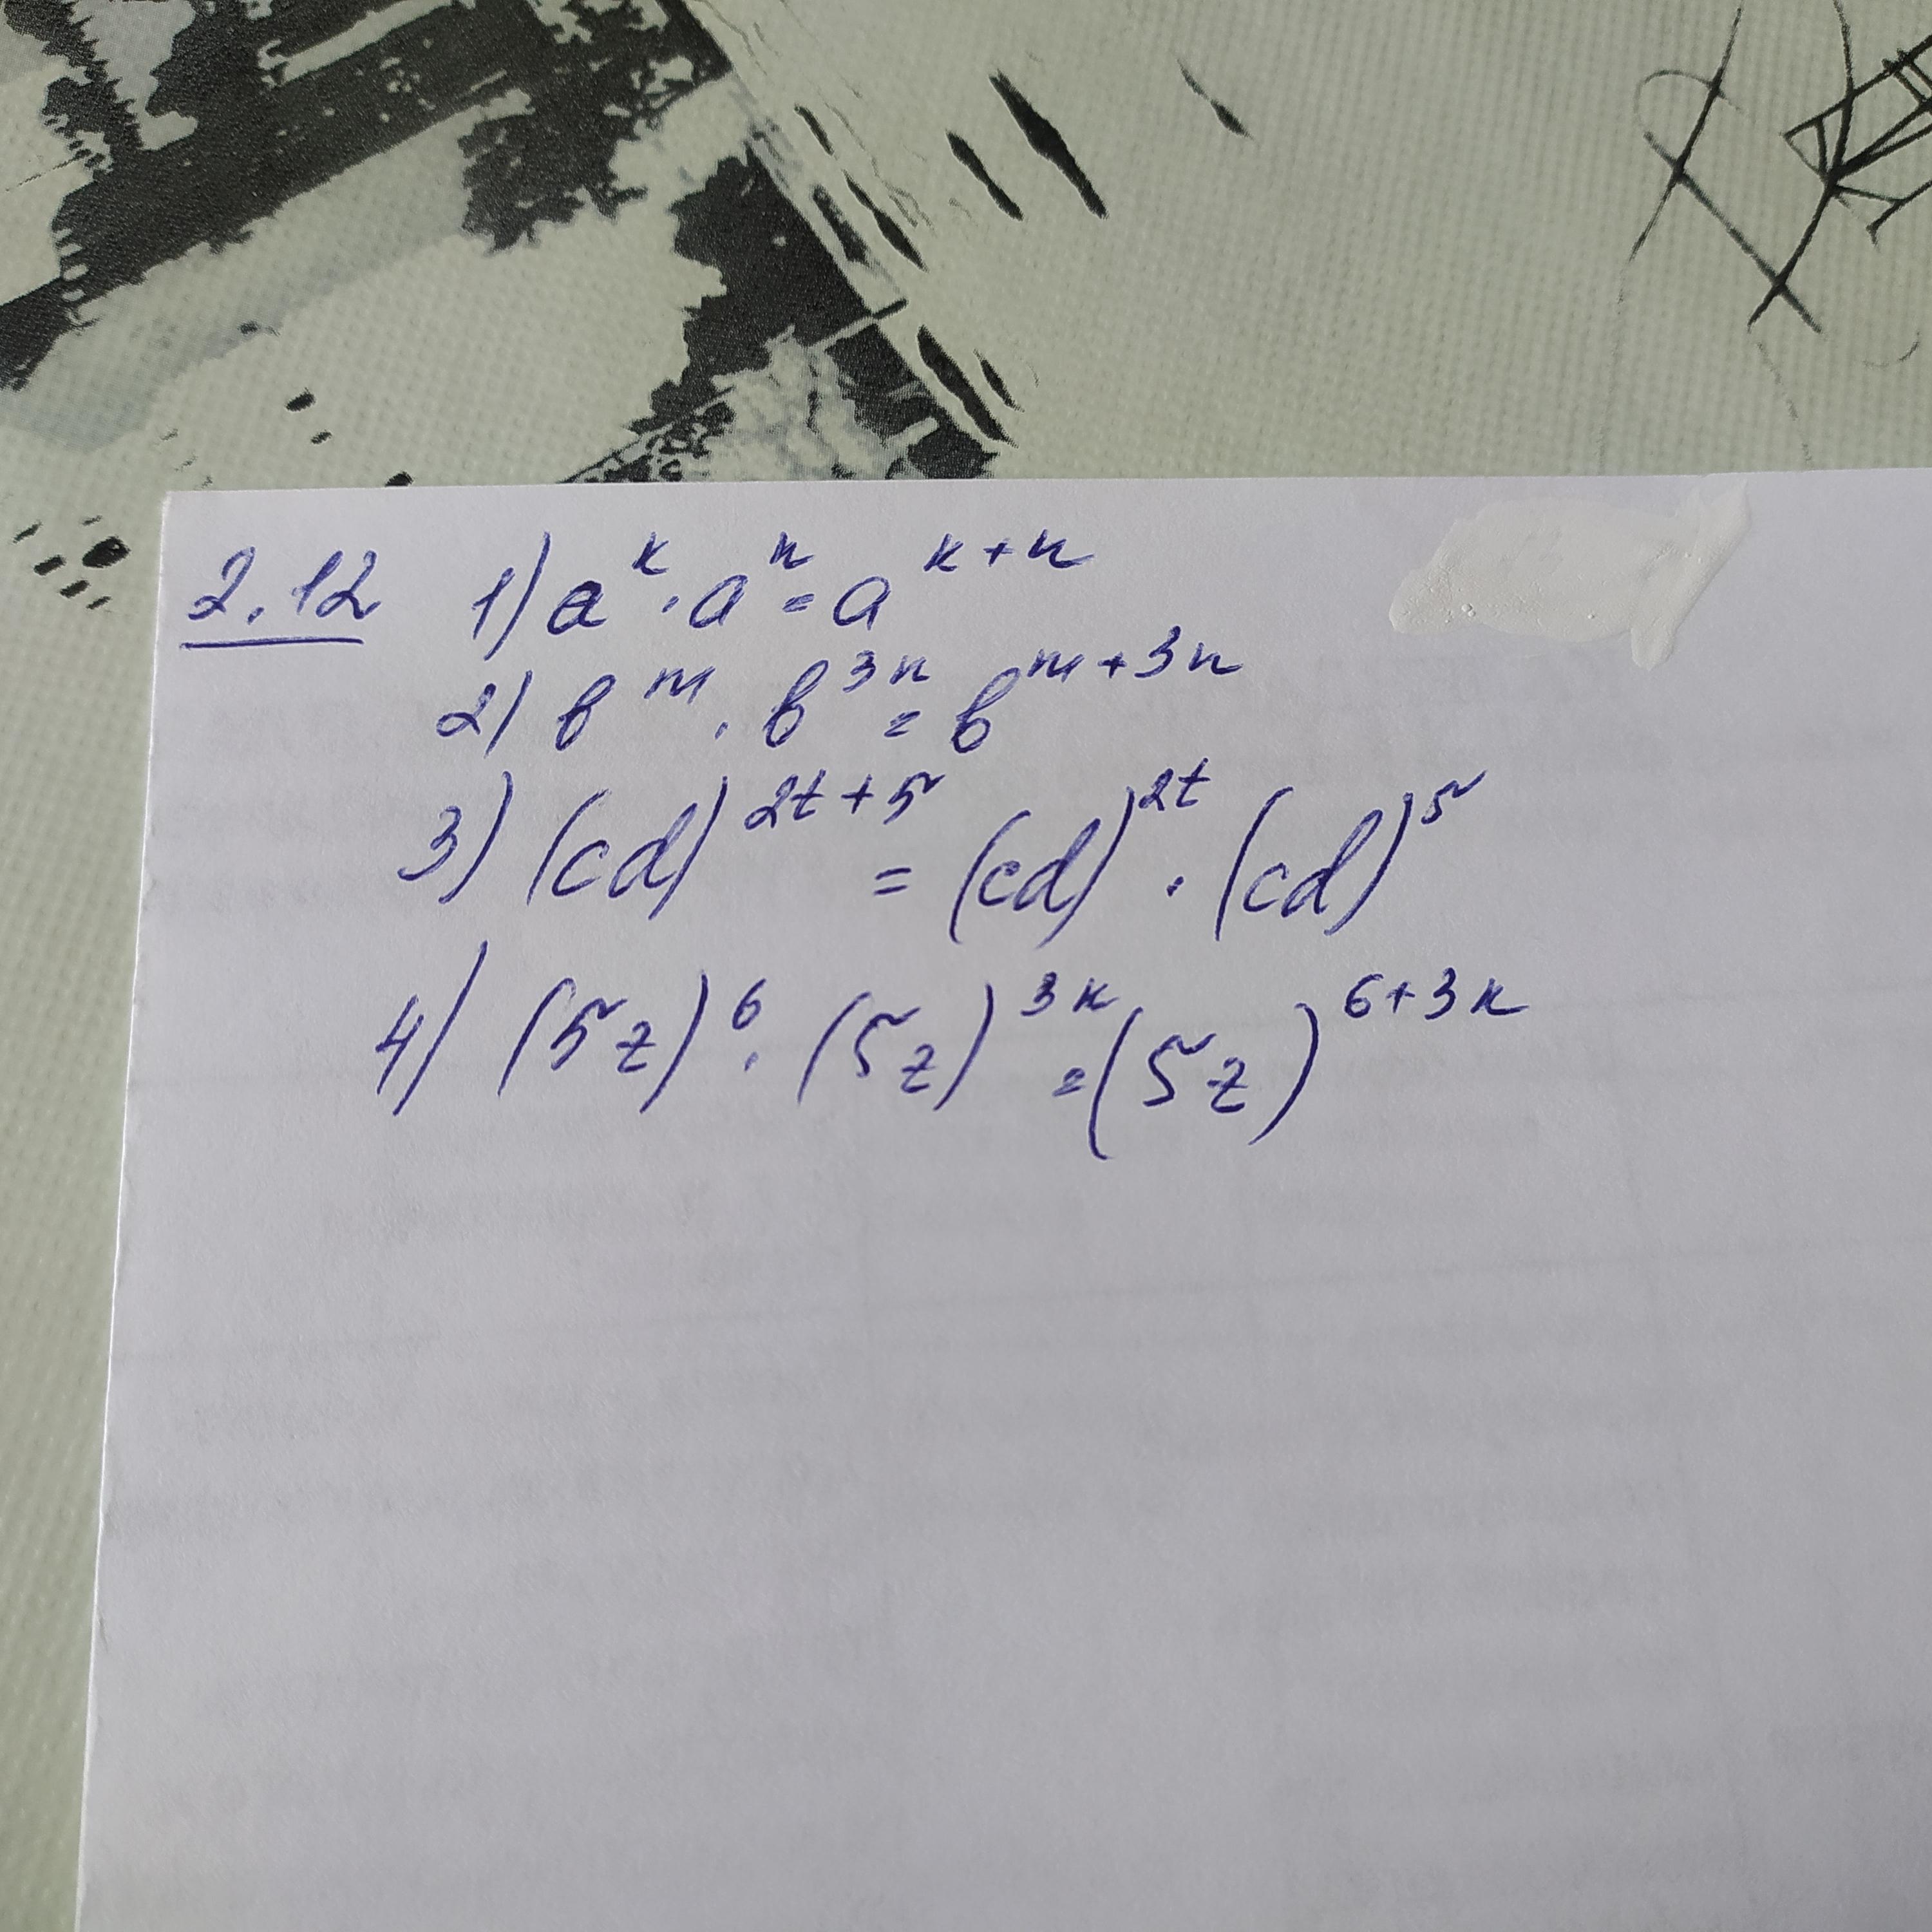 2.12 1) a^k · a^n = a^{k+n}
2) b^m · b^{3n} = b^{m+3n}
3) (cd)^{2t+5} = (cd)^{2t} · (cd)^5
4) (5z)^6 · (5z)^{3k} = (5z)^{6+3k}